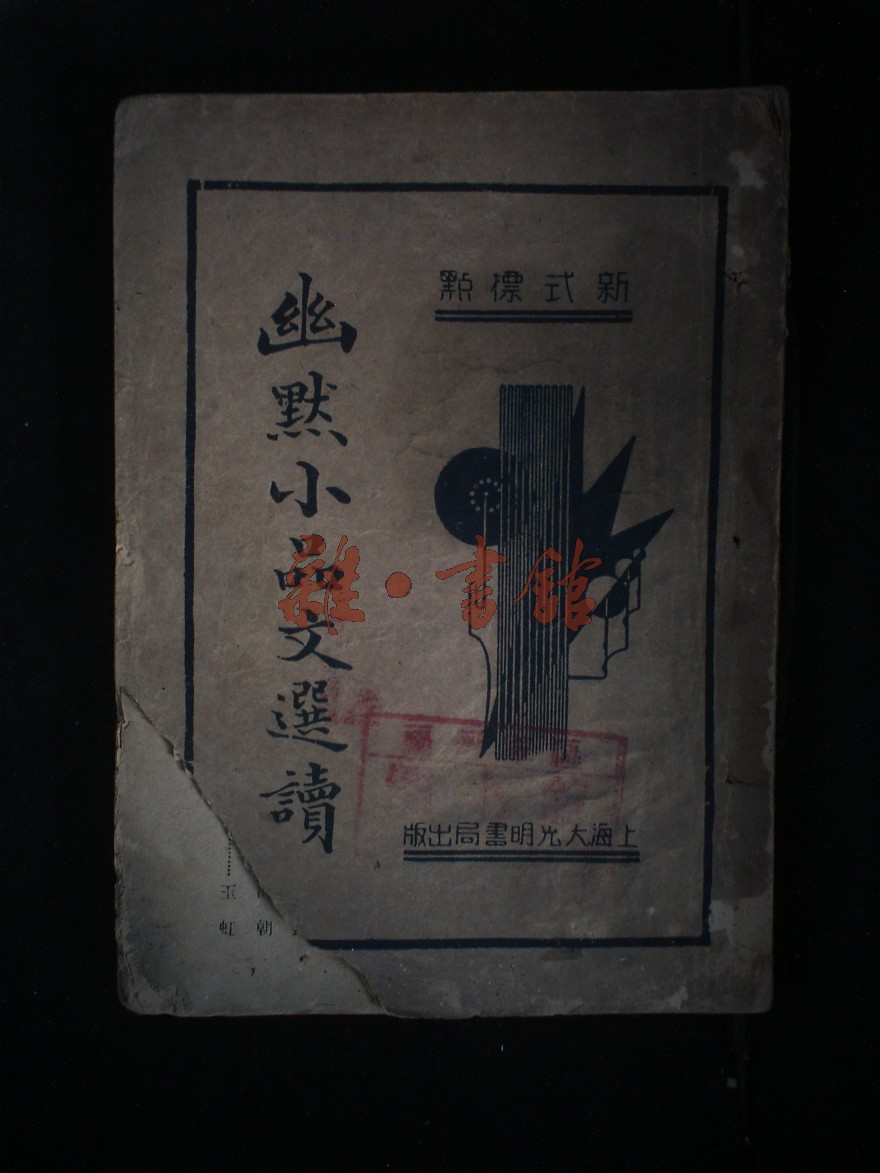 新式標點
幽默小品文選讀
上海大光明書局出版
雜·書館
朝
王虹